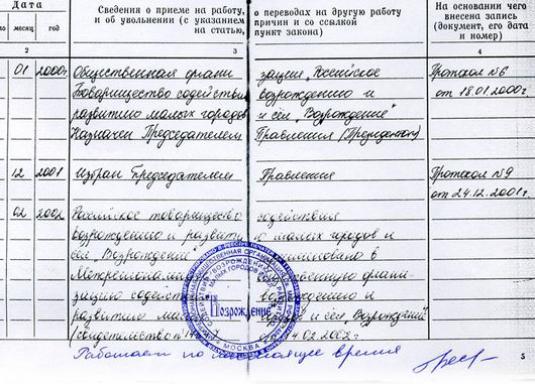 Дата
месяц год
Сведения о приеме на работу, о переводах на другую работу
и об увольнении (с указанием причин и со ссылкой
на статью, пункт закона)
На основании чего
внесена запись
(документ, его дата
и номер)
2 3 4
01 2000г. Общественная органи зация „Российское Протокол №6
Товарищество содействия возрождению и от 18.01.2000г.
развитию малых городов и сёл „Возрождение"
Назначен Председателем Правления (Президентом)
12 2001 Избран Председателем Правления Протокол №9
от 24.12.2001г.
02 2002 Российское товарищество содействия
возрождению и развити ю малых городов и
сёл „Возрождение"
Межрегиональ органи-
зацию содейст возрождению и
развитию мал и сёл „Возрождение"
(свидетельство от 14.02.2002г
Возрождение
МОСКВА
Работает по настоящее время
5